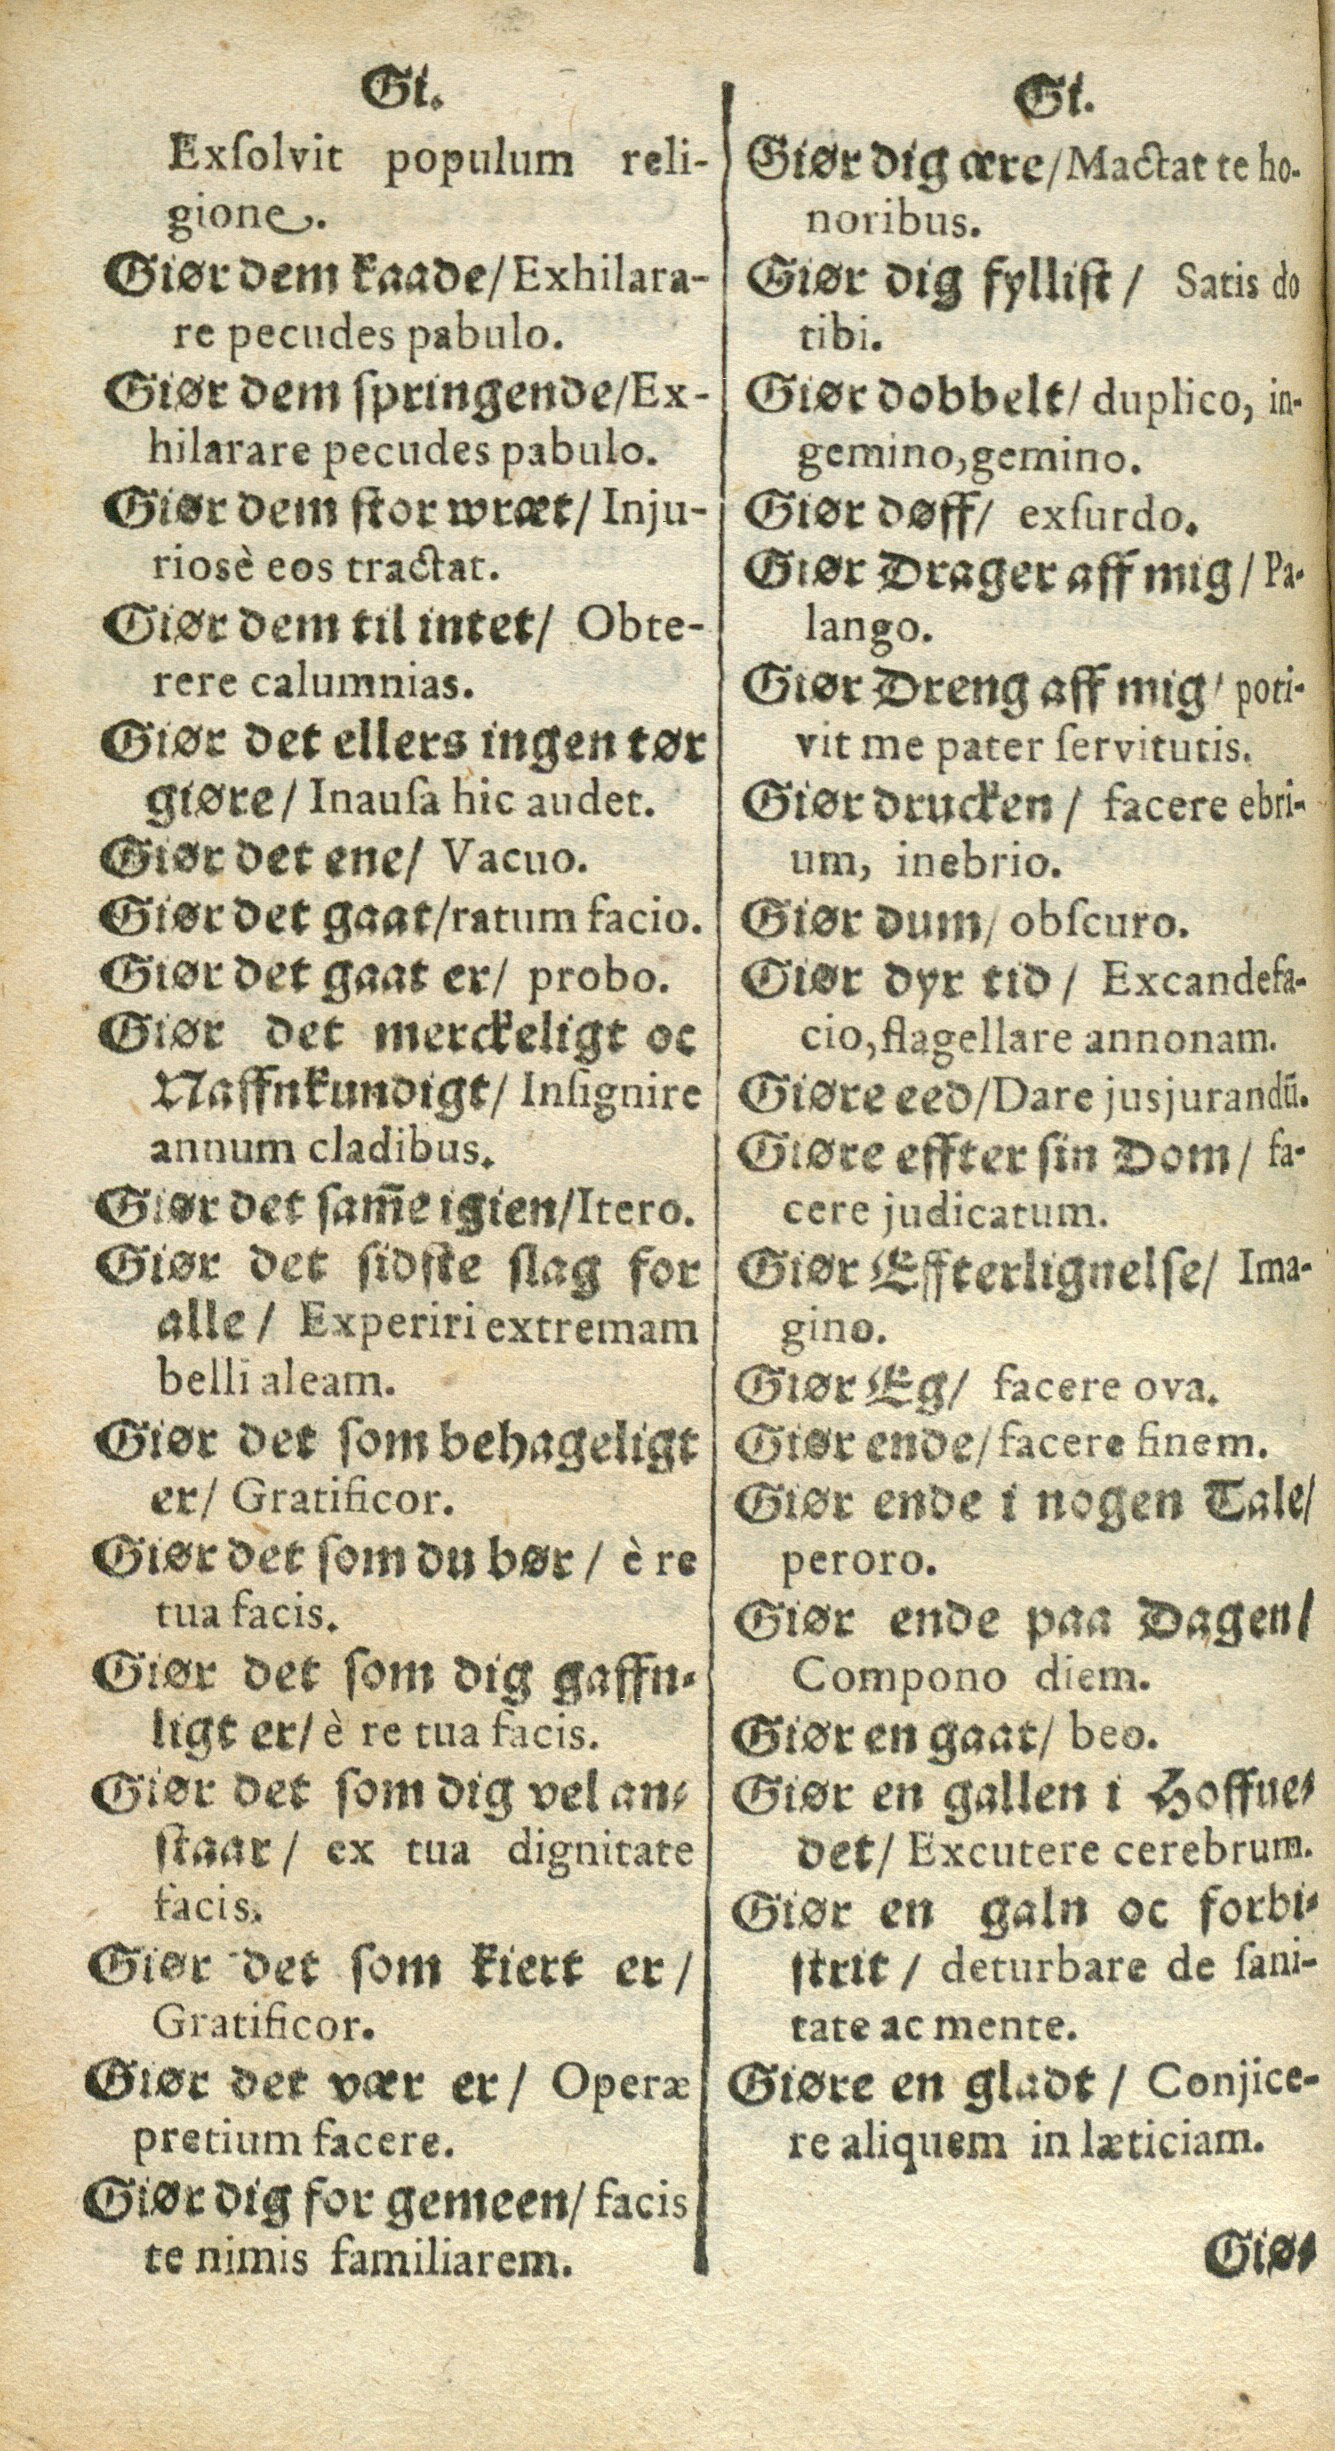 Gi.
Exſolvit populum reli-
gione.
Giør dem kaade/ Exhilara-
re pecudes pabulo.
Giør dem ſpringende/ Ex-
hilarare pecudes pabulo.
Giør dem ſtor wræt/ Inju-
riosè eos tractat.
Giør dem til intet/ Obte-
rere calumnias.
Giør det ellers ingen tør
giøre/ Inauſa hic audet.
Giør det ene/ Vacuo.
Giør det gaat/ ratum facio.
Giør det gaat er/ probo.
Giør det merckeligt oc
Naffnkundigt/ Inſignire
annum cladibus.
Giør det ſam̃e igien/ Itero.
Giør det ſidſte ſlag for
alle/ Experiri extremam
belli aleam.
Giør det ſom behageligt
er/ Gratificor.
Giør det ſom du bør/ è re
tua facis.
Giør det ſom dig gaffn-
ligt er/ è re tua facis.
Giør det ſom dig vel an-
ſtaar/ ex tua dignitate
facis.
Giør det ſom kiert er/
Gratificor.
Giør det vær er/ Operæ
pretium facere.
Giør dig for gemeen/ facis
te nimis familiarem.
Gi.
Giør dig ære/ Mactat te ho-
noribus.
Giør dig fylliſt/ Satis do
tibi.
Giør dobbelt/ duplico, in-
gemino, gemino.
Giør døff/ exſurdo.
Giør Drager aff mig/ Pa-
lango.
Giør Dreng aff mig/ poti-
vit me pater ſervitutis.
Giør drucken/ facere ebri-
um, inebrio.
Giør dum/ obſcuro.
Giør dyr tid/ Excandefa-
cio, flagellare annonam.
Giøre eed/ Dare jusjurandū.
Giøre effter ſin Dom/ fa-
cere judicatum.
Giør Effterlignelſe/ Ima-
gino.
Giør Eg/ facere ova.
Giør ende/ facere finem.
Giør ende i nogen Tale/
peroro.
Giør ende paa Dagen/
Compono diem.
Giør en gaat/ beo.
Giør en gallen i Hoffue-
det/ Excutere cerebrum.
Giør en galn oc forbi-
ſtrit/ deturbare de ſani-
tate ac mente.
Giøre en gladt/ Conjice-
re aliquem in læticiam.
Giø-